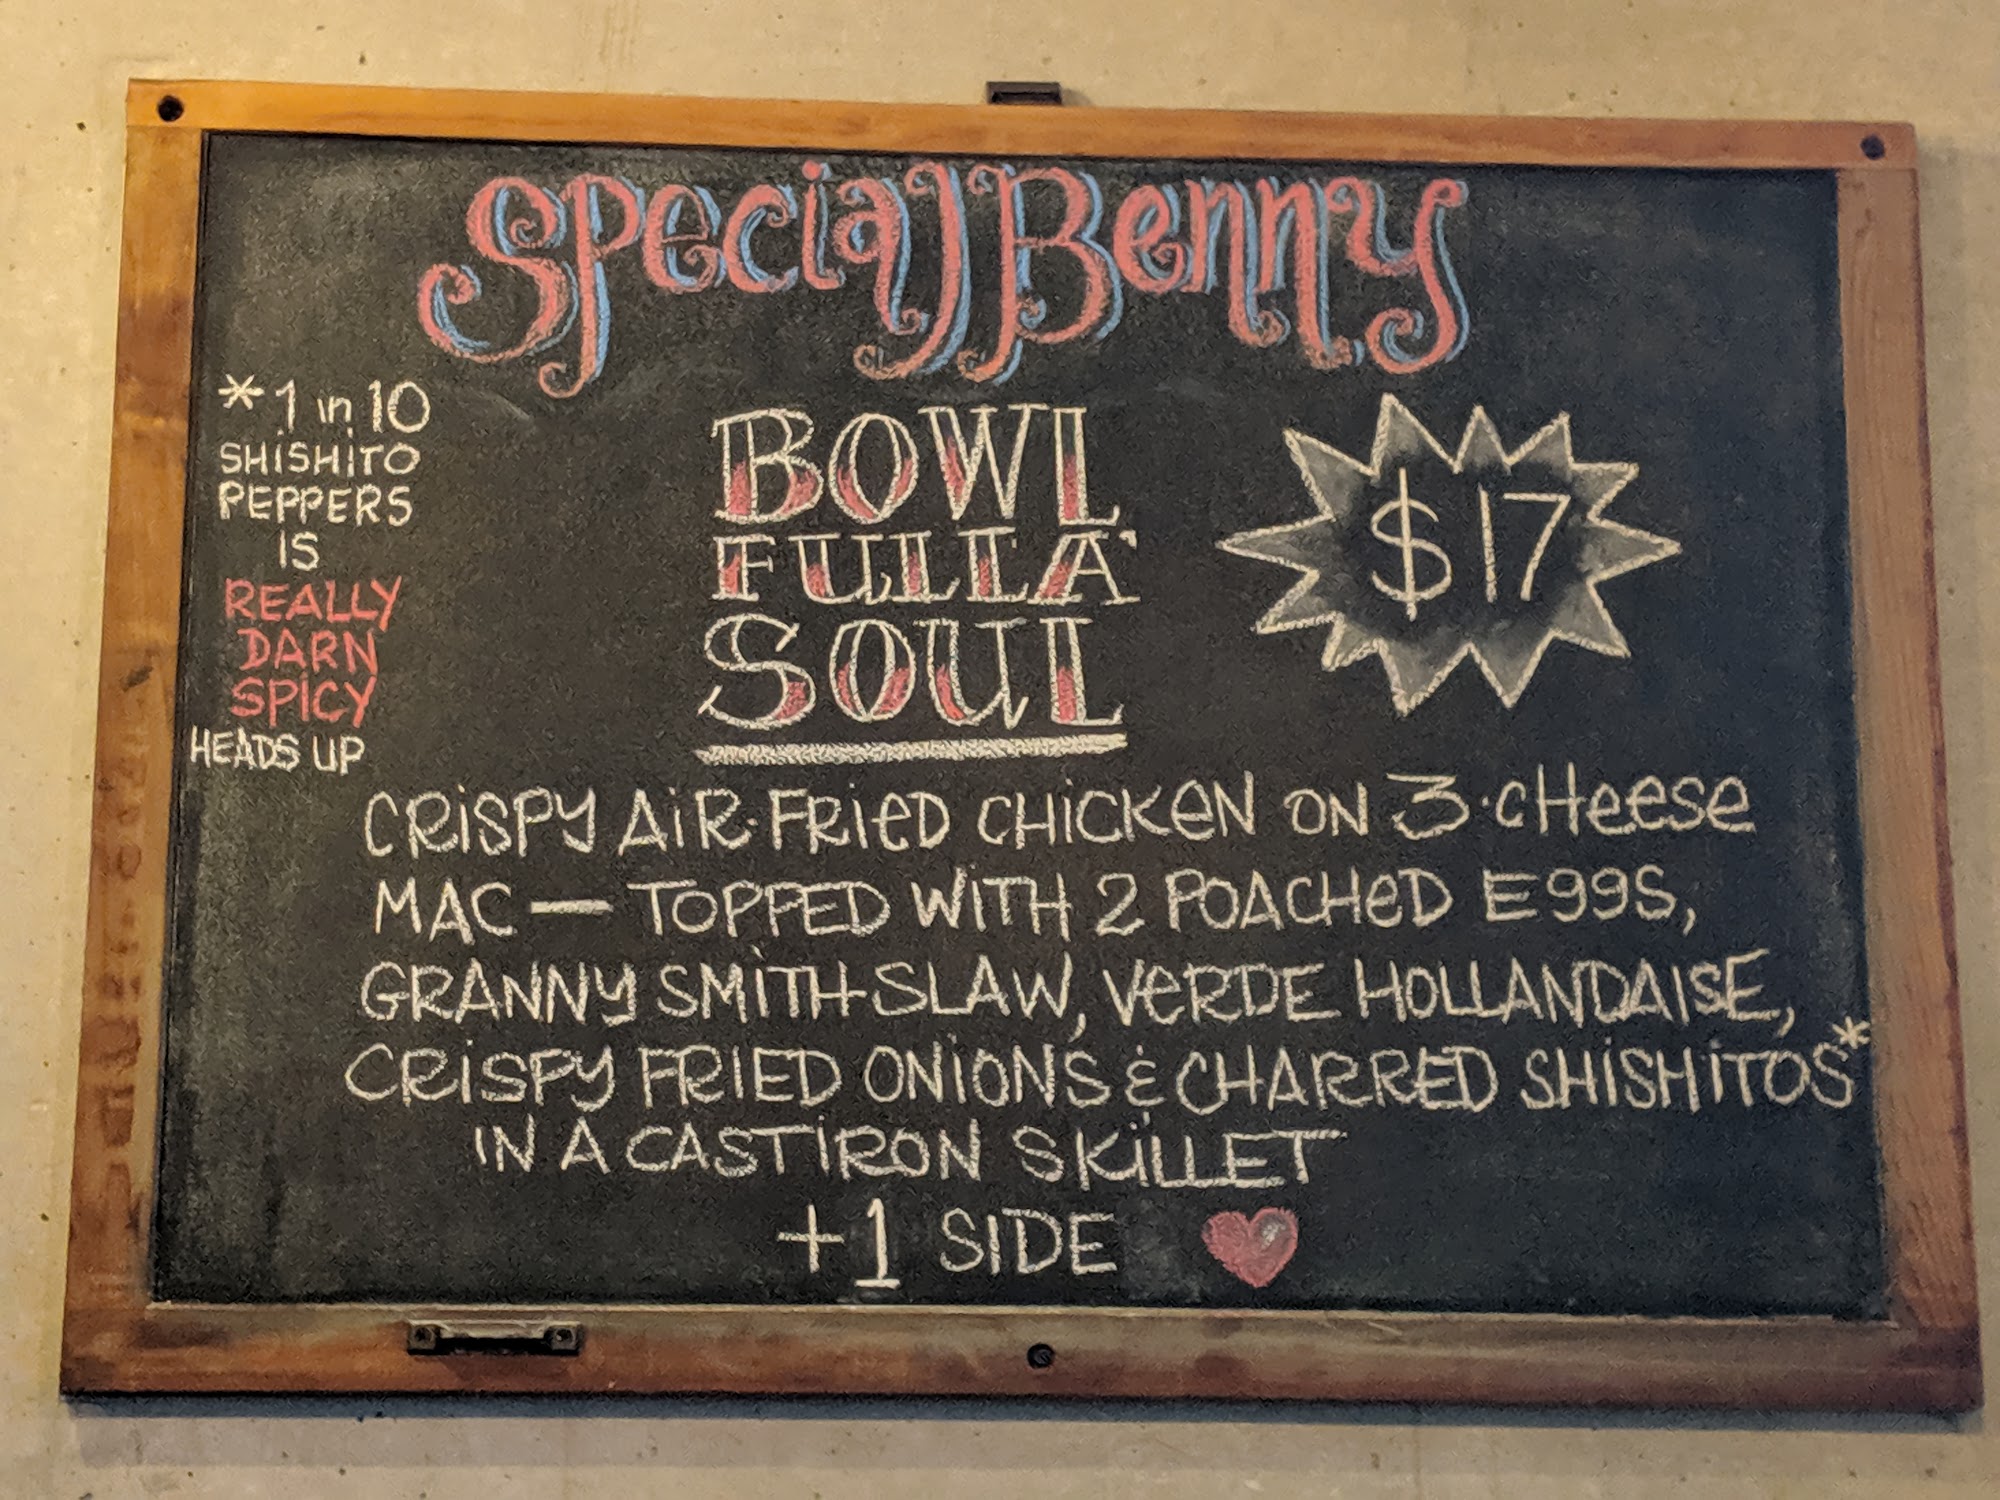 Special Benny
BOWL
FULLA'
SOUL
$17
*1 in 10
SHISHITO
PEPPERS
IS
REALLY
DARN
SPICY
HEADS UP
CRISPY AIR-FRIED CHICKEN ON 3-CHEESE
MAC — TOPPED WITH 2 POACHED EGGS,
GRANNY SMITH SLAW, VERDE HOLLANDAISE,
CRISPY FRIED ONIONS & CHARRED SHISHITOS*
IN A CAST IRON SKILLET
+1 SIDE